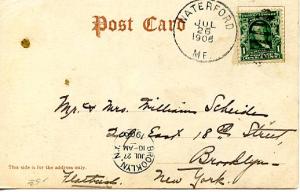 Post Card
WATERFORD
JUL
26
1906
ME.
Mr. & Mrs. William Scheider
East 18th Street,
BROOKLYN, N.Y.
JUL 27
10-AM
1906
Brooklyn
This side is for the address only.
Flatbush
New York.